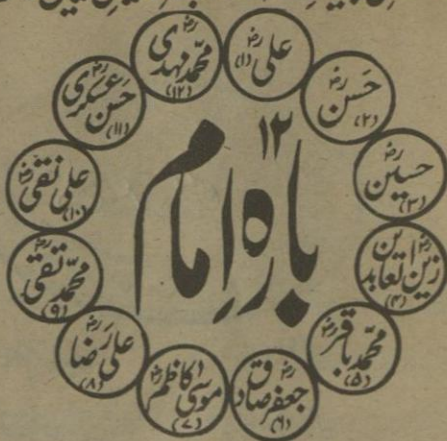 ۱۲
بارہ اِمام
علی رضؓ (۱)
حَسن رضؓ (۲)
حسین رضؓ (۳)
زین العابدین رضؓ (۴)
محمّد باقر رضؓ (۵)
جعفر صادق رضؓ (۶)
موسیٰ کاظم رضؓ (۷)
علی رَضا رضؓ (۸)
محمّد تقی رضؓ (۹)
علی نقی رضؓ (۱۰)
حسن عسکری رضؓ (۱۱)
محمّد مہدی رضؓ (۱۲)